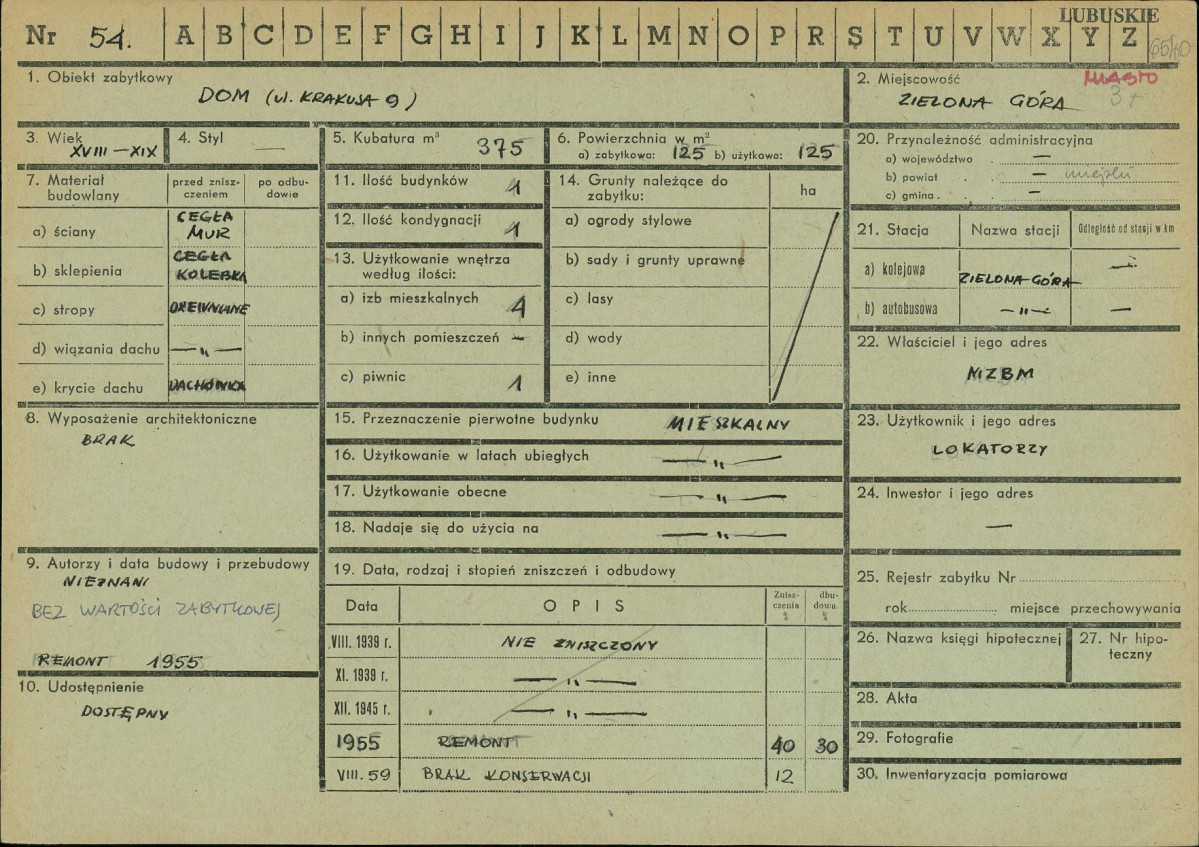 LUBUSKIE
Nr 54. A B C D E F G H I J K L M N O P R S T U V W X Y Z
1. Obiekt zabytkowy
DOM (ul. KRAKUSA 9)
2. Miejscowość MIASTO
ZIELONA GÓRA 3+
3. Wiek
XVIII — XIX
4. Styl
—
5. Kubatura m³ 375
6. Powierzchnia w m²
a) zabytkowa: 125 b) użytkowa: 125
20. Przynależność administracyjna
a) województwo . —
b) powiat . . —
c) gmina . . —
7. Materiał budowlany
przed znisz-
czeniem
po odbu-
dowie
a) ściany CEGŁA
MUR
b) sklepienia CEGŁA
KOLEBKA
c) stropy DREWNIANE
d) wiązania dachu — „ —
e) krycie dachu DACHÓWKA
11. Ilość budynków 1
12. Ilość kondygnacji 1
13. Użytkowanie wnętrza
według ilości:
a) izb mieszkalnych 4
b) innych pomieszczeń –
c) piwnic 1
14. Grunty należące do
zabytku:
ha
a) ogrody stylowe
b) sady i grunty uprawne
c) lasy
d) wody
e) inne
21. Stacja Nazwa stacji Odległość od stacji w km
a) kolejowa ZIELONA GÓRA —
b) autobusowa — „ — —
22. Właściciel i jego adres
MZBM
8. Wyposażenie architektoniczne
BRAK
15. Przeznaczenie pierwotne budynku MIESZKALNY
16. Użytkowanie w latach ubiegłych — „ —
17. Użytkowanie obecne — „ —
18. Nadaje się do użycia na — „ —
23. Użytkownik i jego adres
LOKATORZY
24. Inwestor i jego adres
—
9. Autorzy i data budowy i przebudowy
NIEZNANI
BEZ WARTOŚCI ZABYTKOWEJ
REMONT 1955
10. Udostępnienie
DOSTĘPNY
19. Data, rodzaj i stopień zniszczeń i odbudowy
Data OPIS
Znisz-
czenia
%
dbu-
dowa
%
VIII. 1939 r. NIE ZNISZCZONY
XI. 1939 r. — „ —
XII. 1945 r. — „ —
1955 REMONT 40 30
VIII. 59 BRAK KONSERWACJI 12
25. Rejestr zabytku Nr
rok miejsce przechowywania
26. Nazwa księgi hipotecznej
27. Nr hipo-
teczny
28. Akta
29. Fotografie
30. Inwentaryzacja pomiarowa